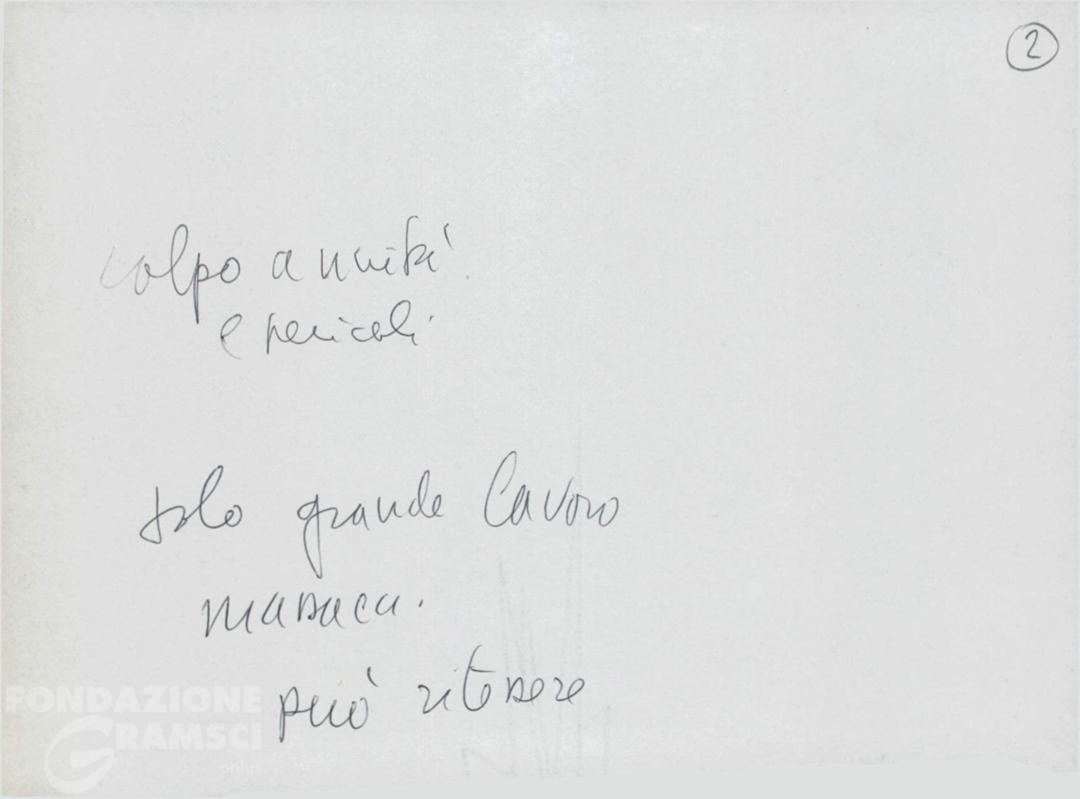 2
colpo a unità
e pericoli
solo grande lavoro
può ritessere
FONDAZIONE
GRAMSCI
onlus